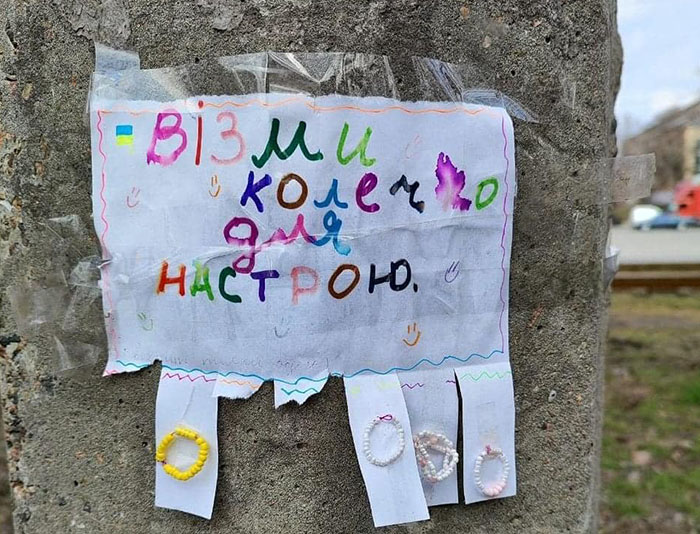 ВІЗМИ
КОЛЕЧКО
ДЛЯ
НАСТРОЮ.